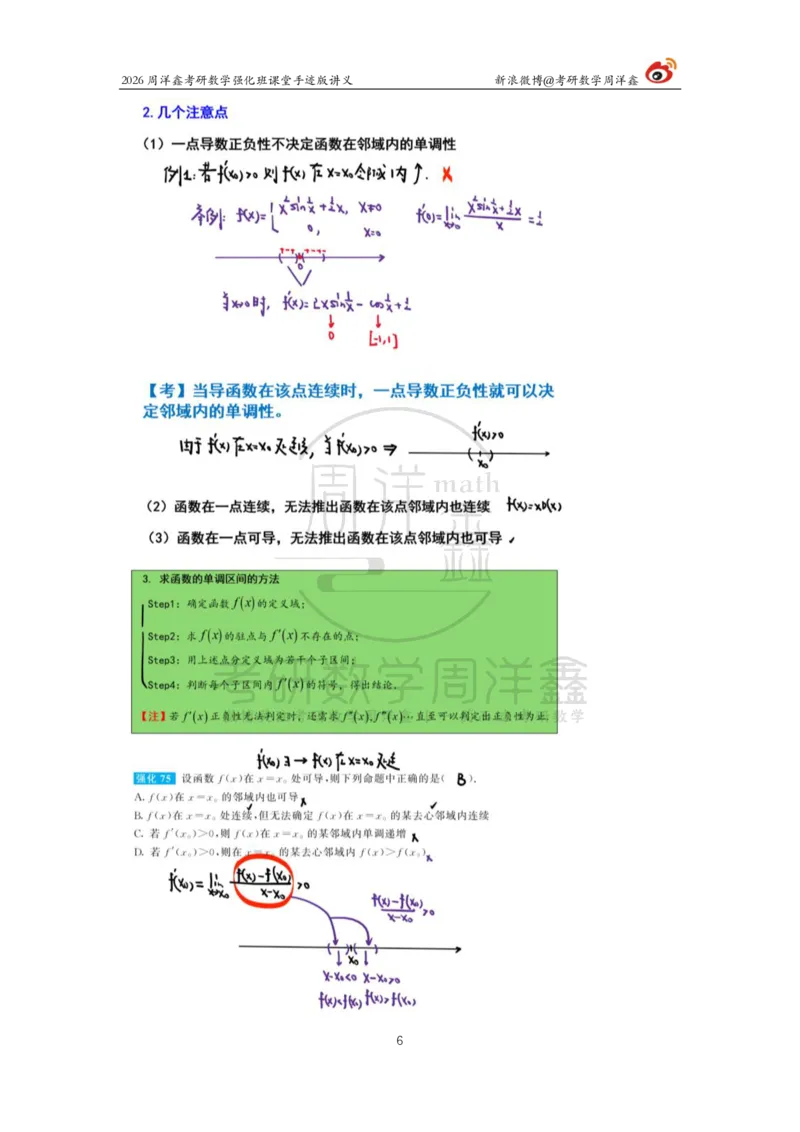 2026 周洋鑫考研数学强化班课堂手迹版讲义 新浪微博@考研数学周洋鑫
2.几个注意点
（1）一点导数正负性不决定函数在邻域内的单调性
例1:若f'(x₀)>0 则 f(x) 在 x=x₀ 邻域内↑. ×
f(x)={ x²sin1/x+1/2x, x≠0 f'(0)=lim x→0 (x²sin1/x+1/2x)/x =1/2
0, x=0
0
当x≠0时, f'(x)=2xsin1/x-cos1/x+1/2
↓ ↓
0 [-1,1]
【考】当导函数在该点连续时，一点导数正负性就可以决
定邻域内的单调性。
由于 f'(x) 在x=x₀ 处连续, 当f'(x₀)>0 ⇒ f'(x)>0
( ) x₀
周洋鑫
math
（2）函数在一点连续，无法推出函数在该点邻域内也连续 f(x)=xD(x)
（3）函数在一点可导，无法推出函数在该点邻域内也可导
3. 求函数的单调区间的方法
Step1: 确定函数 f(x) 的定义域;
Step2: 求 f(x) 的驻点与 f'(x) 不存在的点;
Step3: 用上述点分定义域为若干个子区间;
Step4: 判断每个子区间内 f'(x) 的符号，得出结论。
考研数学周洋鑫
【注】若 f'(x) 正负性无法判定时，还需求 f''(x), f'''(x)…直至可以判定出正负性为止.
f'(x₀)∃→f(x)在x=x₀处连
强化 75 设函数 f(x)在 x=x₀ 处可导,则下列命题中正确的是( B ).
A. f(x)在 x=x₀ 的邻域内也可导 ×
B. f(x)在 x=x₀ 处连续,但无法确定 f(x)在 x=x₀ 的某去心邻域内连续
C. 若 f'(x₀)>0,则 f(x)在 x=x₀ 的某邻域内单调递增 ×
D. 若 f'(x₀)>0,则在 x=x₀ 的某去心邻域内 f(x)>f(x₀) ×
f'(x₀)=lim x→x₀ (f(x)-f(x₀))/(x-x₀) >0
(f(x)-f(x₀))/(x-x₀) >0
x₀
x-x₀<0 x-x₀>0
f(x)<f(x₀) f(x)>f(x₀)
6